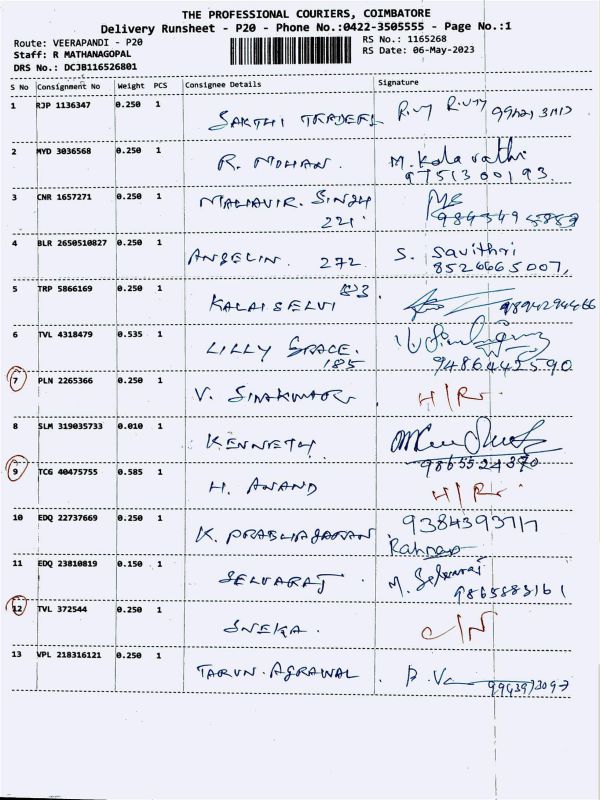 THE PROFESSIONAL COURIERS, COIMBATORE
Delivery Runsheet - P20 - Phone No.:0422-3505555 - Page No.:1
Route: VEERAPANDI - P20
RS No.: 1165268
Staff: R MATHANAGOPAL
RS Date: 06-May-2023
DRS No.: DCJB116526801
S No Consignment No Weight PCS Consignee Details Signature
1 RJP 1136347 0.250 1 SAKTHI TRADERS
2 MYD 3036568 0.250 1 R. MOHAN. M. Kala vathi
9751300193.
3 CNR 1657271 0.250 1 MAHAVIR. SINGH
221.
4 BLR 2650510827 0.250 1 ANGELIN. 272. S. Savithri
8526665007,
5 TRP 5866169 0.250 1 KALAISELVI 9894294466
6 TVL 4318479 0.535 1 LILLY GRACE.
185 9486442590
7 PLN 2265366 0.250 1 V. SIVAKUMAR
8 SLM 319035733 0.010 1 KENNETH
9865524370
9 TCG 40475755 0.585 1 H. ANAND
10 EDQ 22737669 0.250 1 K. PRABHAGARAN
11 EDQ 23810819 0.150 1 SELVARAJ M. Selvaraj
9865883161
12 TVL 372544 0.250 1 SNEKA. C/N
13 VPL 218316121 0.250 1 TARUN. AGRAWAL